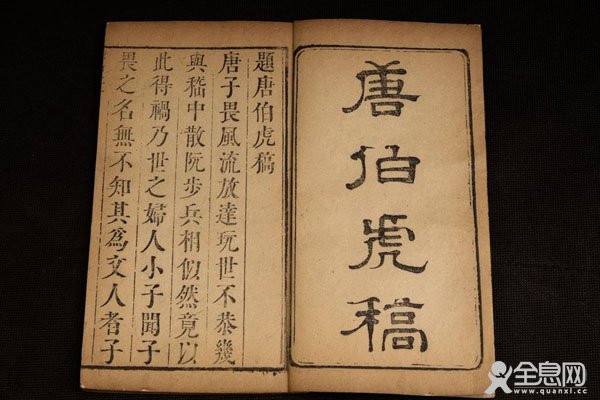 唐伯虎稿
題唐伯虎稿
唐子畏風流放達玩世不恭幾
與嵇中散阮步兵相似然竟以
此得禍乃世之婦人小子聞子
畏之名無不知其為文人者子
全息网
www.quanxi.cc